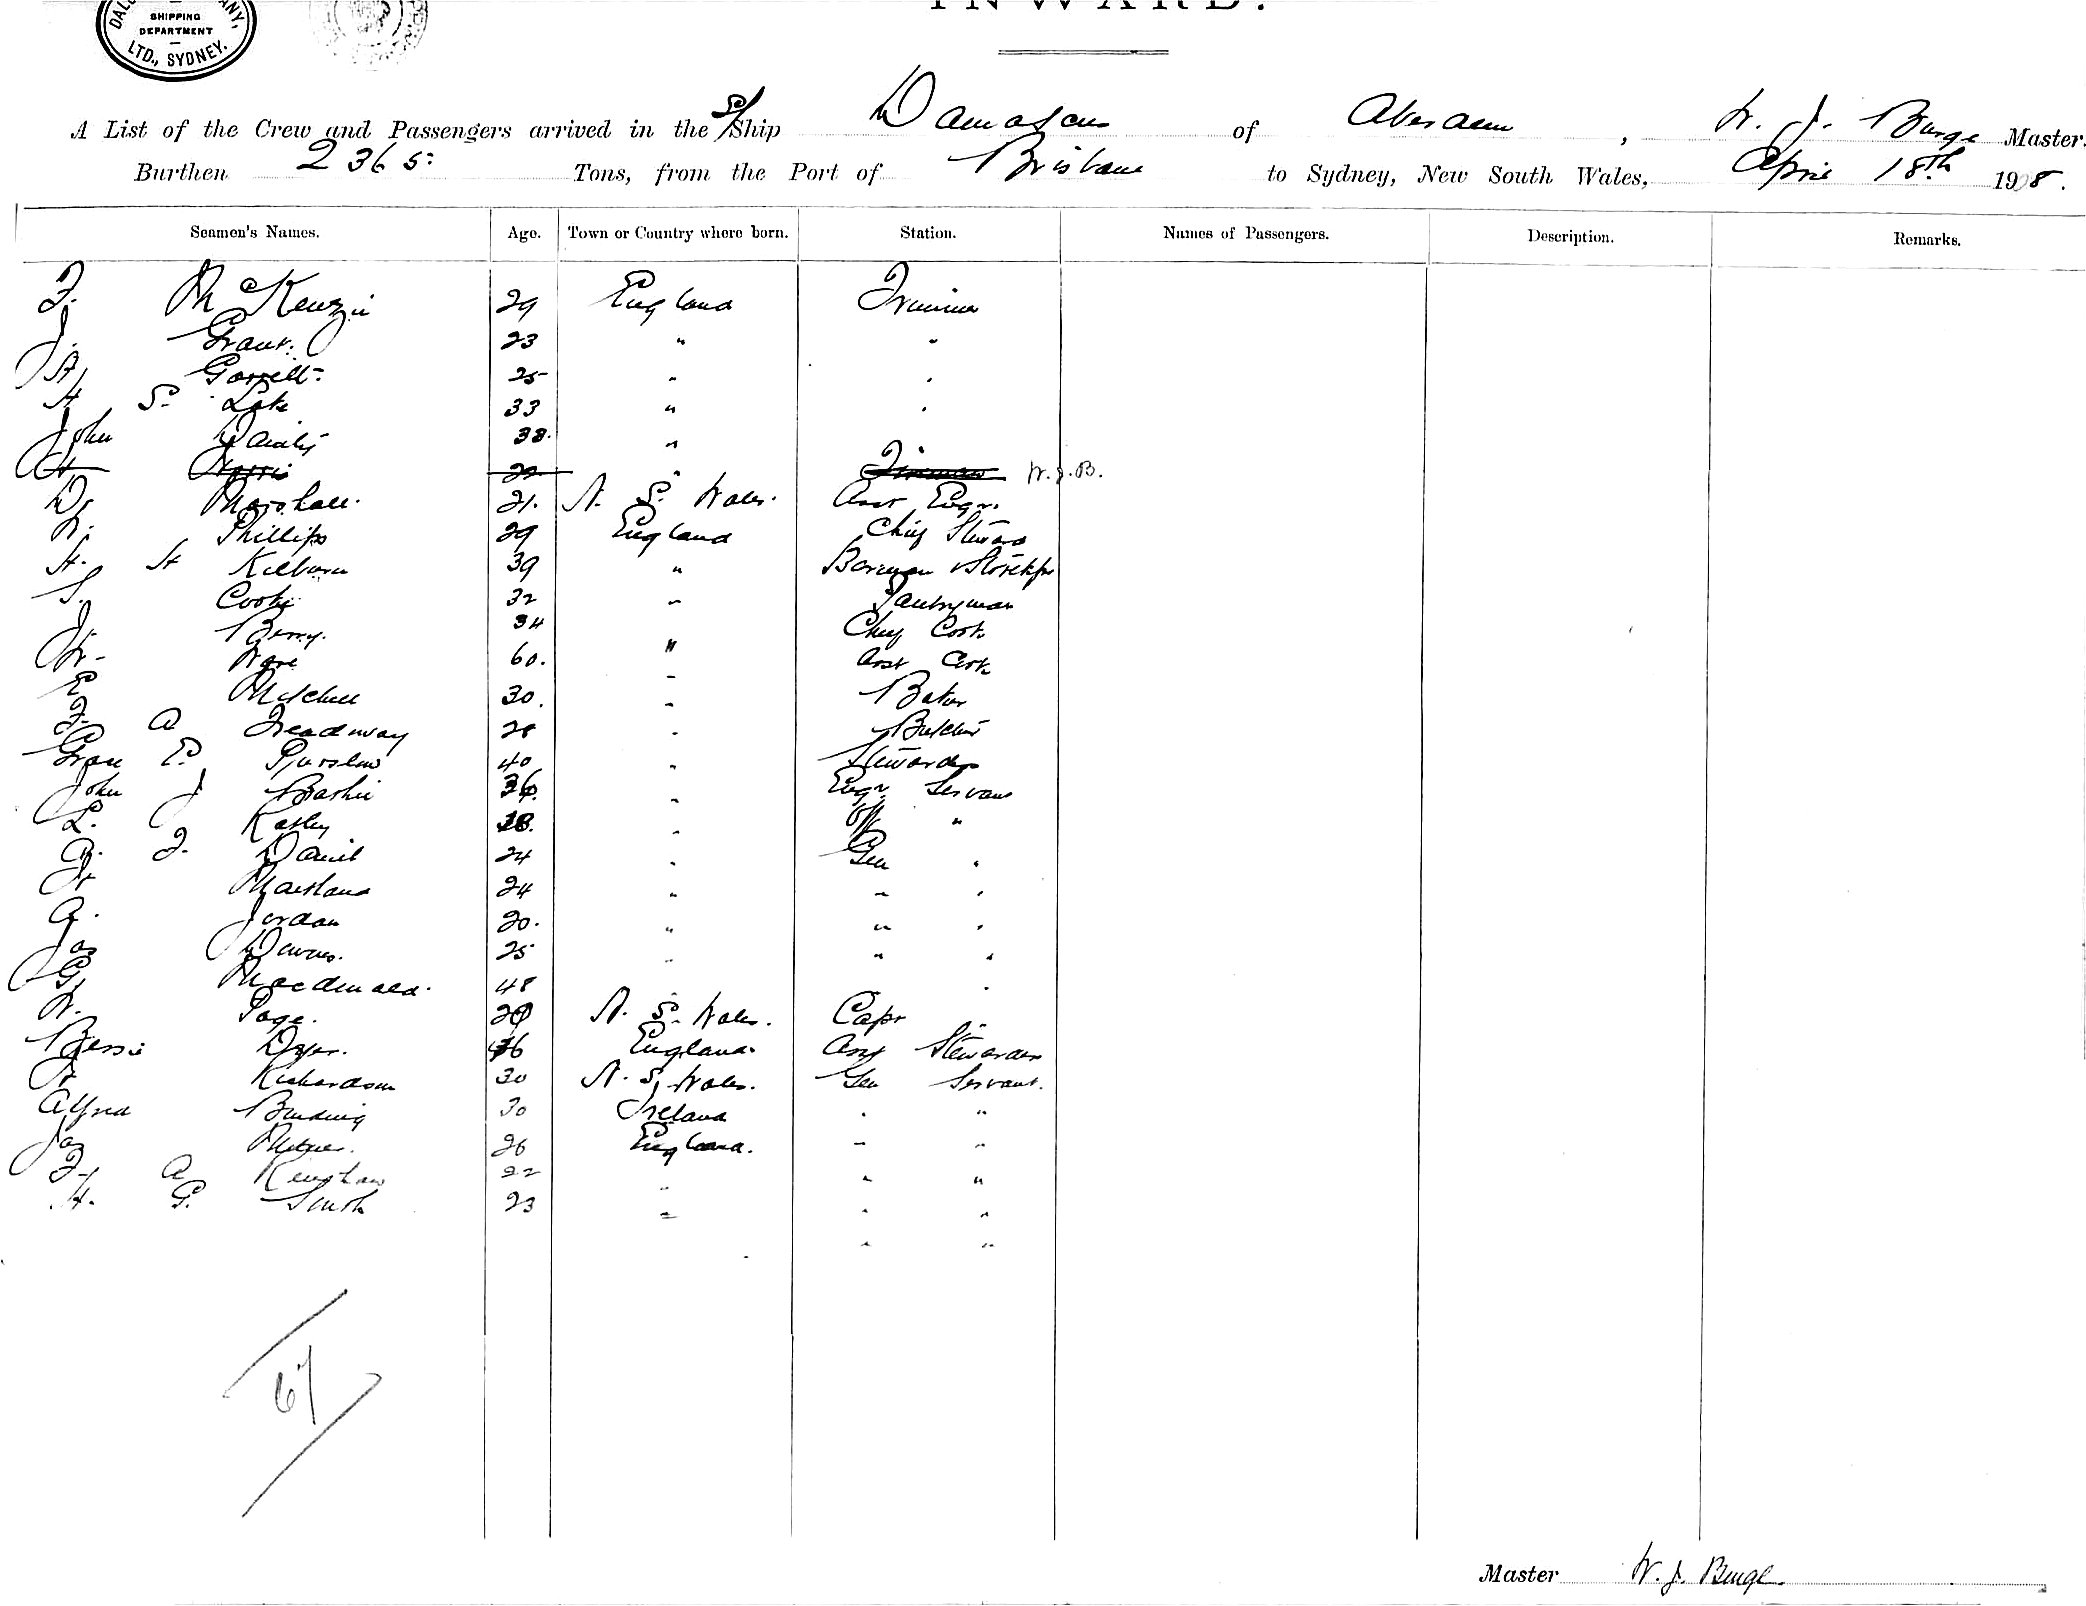 SHIPPING
DEPARTMENT
LTD., SYDNEY.
INWARD.
A List of the Crew and Passengers arrived in the S/Ship Damascus of Aberdeen, W. J. Burge Master.
Burthen 2365 Tons, from the Port of Brisbane to Sydney, New South Wales, April 18th 1908.
Seamen's Names. Age. Town or Country where born. Station. Names of Passengers. Description. Remarks.
F. McKenzie 29 England Trimmer
J. Grant. 23 " "
Garrett 25 " "
H S. Lake 33 " "
John 38. "
H Norris 22 " Fireman W.J.B.
D. Marshall. 21. N. S. Wales. Asst Engr.
W. Phillips 29 England Chief Steward
H. H Kilburn 39 " Barman & Storekpr
S. Cooke 32 " Pantryman
J. Berry. 34 " Chief Cook
W. Ware 60. " Asst Cook
E Mitchell 30. " Baker
F. A Treadway 28 " Butcher
E. 40 " Stewardess
John J 36. " Engr. Servant
L. 18. " "
F. David 24 " Gen "
Maitland 24 " " "
A. Jordan 20. " " "
Jas Downes. 25 " " "
G. Macdonald. 48 "
W. Page. 20 N. S. Wales. Capt "
Bessie Dyer. 36 England. Asst Stewardess
Richardson 30 N. S. Wales. Gen Servant.
Alfred 30 Ireland " "
Jas Milner. 26 England. " "
F. A Renshaw 22 " " "
H. G. Smith 23 " " "
" "
67
Master W. J. Burge